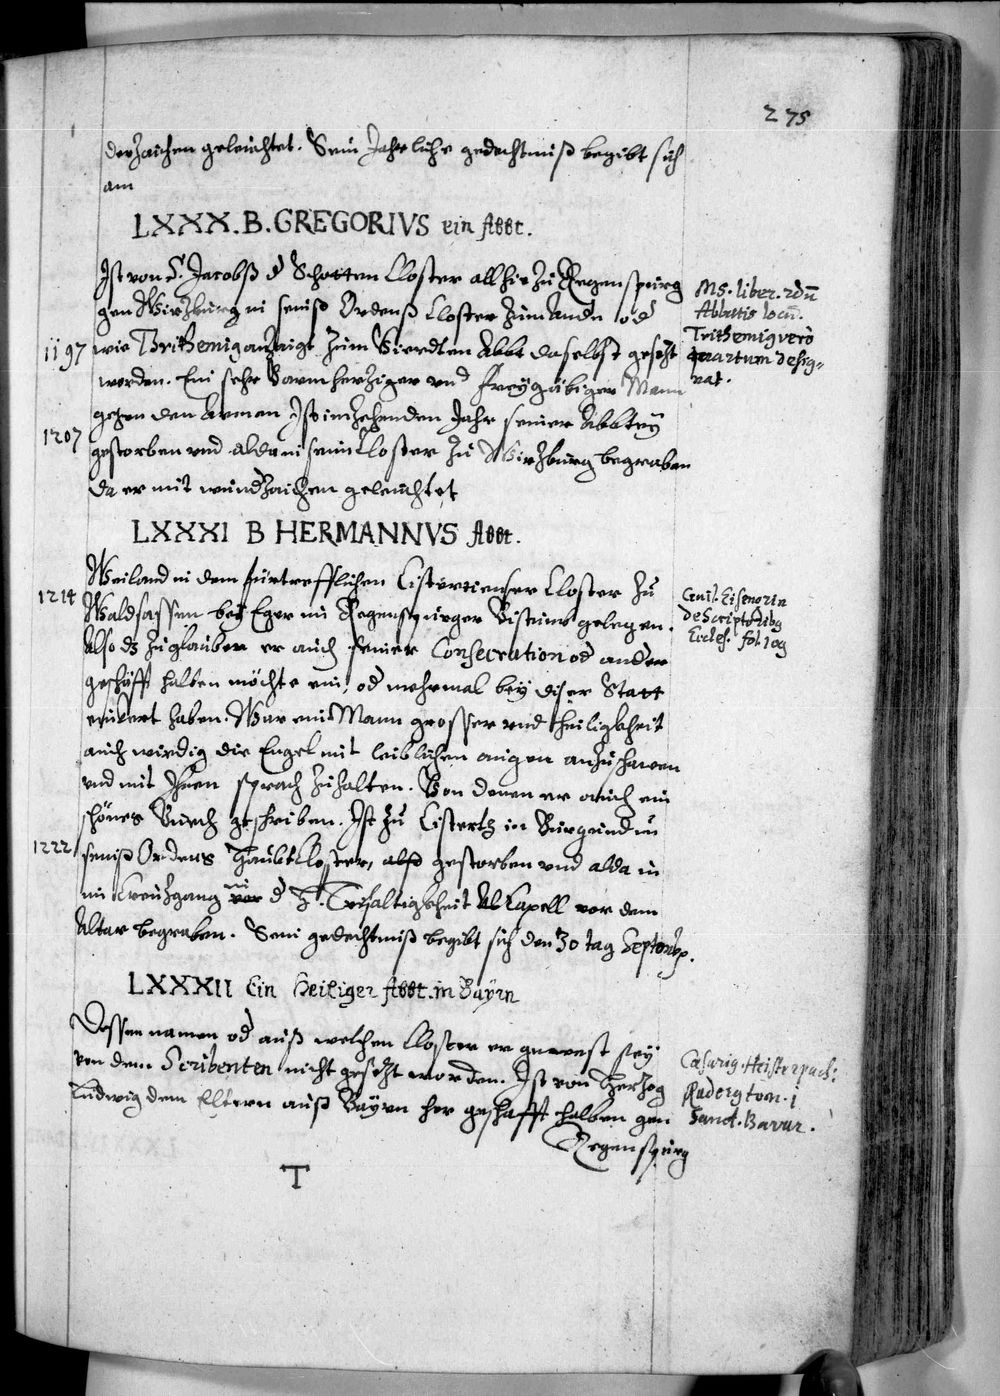 275
derzaichen geleüchtet. Sein Jahrliche gedechtniß begibt sich
am
LXXX. B. GREGORIVS ein Abbt.
Ist von S. Jacobß d Schotten Closter allhie zu Regenspurg
gen Wirzburg in seniß Ordenß Closter zum andn od
1197 wie Trithemig anzaigt zum Vierdten Abbt daselbst gesezt
worden. Ein sehr barmherziger und freÿgäbiger Mann
gegen den Armen Ist im zehenden Jahr seiner Abbteÿ
1207 gestorben und alda in seim Closter zu Wirzburg begraben
da er mit wundzaichen geleüchtet
Ms. liber. 2dū
Abbatis locū.
Trithemig verò
quartum desig-
nat.
LXXXI B HERMANNVS Abbt.
Weiland in dem fürtrefflichen Cistertienser Closter zu
1214 Waldsassen bey Eger im Regenspurger Bistumb gelegen.
Also dz zuglauben er auch seiner Consecration od ander
geschäfft halben möchte ein, od mehrmal beÿ diser Statt
einkert haben. War ein Mann grosser und heiligkheit
auch wirdig die Engel mit leiblichen augen anzuschawen
und mit Ihnen sprach zuhalten. Von denen er auch ein
schönes Buech geschriben. Ist zu Cistertz in Burgundin
1222 seniß Ordens Haubtcloster, also gestorben und alda in
im Creuzgang vor in d H. Trifaltigkheit Al Capell vor dem
Altar begraben. Sein gedechtniß begibt sich den 30 tag Septembr.
Guil. Eisenorin
de Scriptoribg
Eccles. fol. 109
LXXXII Ein Heiliger Abbt. in Bayrn
Dessen namen od auß welchen Closter er gewest seÿ
von dem Scribenten nicht gesezt worden. Ist von Herzog
Ludwig dem Eltern auß Bayrn her geschafft halben gen
Regenspurg
Cæsarig. Heisterpach:
Raderg tom. 1
Sanct. Bavar.
T